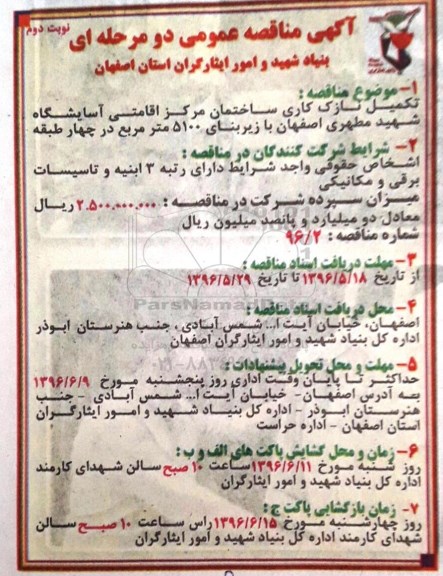 نوبت دوم
آگهی مناقصه عمومی دو مرحله ای
بنیاد شهید و امور ایثارگران استان اصفهان
۱- موضوع مناقصه :
تکمیل نازک کاری ساختمان مرکز اقامتی آسایشگاه
شهید مطهری اصفهان با زیربنای ۵۱۰۰ متر مربع در چهار طبقه
۲- شرایط شرکت کنندگان در مناقصه :
اشخاص حقوقی واجد شرایط دارای رتبه ۳ ابنیه و تاسیسات
برقی و مکانیکی
میزان سپرده شرکت در مناقصه : ۲،۵۰۰،۰۰۰،۰۰۰ ریال
معادل دو میلیارد و پانصد میلیون ریال
شماره مناقصه : ۹۶/۲
۳- مهلت دریافت اسناد مناقصه :
از تاریخ ۱۳۹۶/۵/۱۸ تا تاریخ ۱۳۹۶/۵/۲۹
۴- محل دریافت اسناد مناقصه :
اصفهان، خیابان آیت ا... شمس آبادی ، جنب هنرستان ابوذر
اداره کل بنیاد شهید و امور ایثارگران اصفهان
۵- مهلت و محل تحویل پیشنهادات :
حداکثر تا پایان وقت اداری روز پنجشنبه مورخ ۱۳۹۶/۶/۹
به آدرس اصفهان - خیابان آیت ا... شمس آبادی - جنب
هنرستان ابوذر - اداره کل بنیاد شهید و امور ایثارگران
استان اصفهان - اداره حراست
۶- زمان و محل گشایش پاکت های الف و ب :
روز شنبه مورخ ۱۳۹۶/۶/۱۱ ساعت ۱۰ صبح سالن شهدای کارمند
اداره کل بنیاد شهید و امور ایثارگران
۷- زمان بازگشایی پاکت ج :
روز چهارشنبه مورخ ۱۳۹۶/۶/۱۵ راس ساعت ۱۰ صبح سالن
شهدای کارمند اداره کل بنیاد شهید و امور ایثارگران